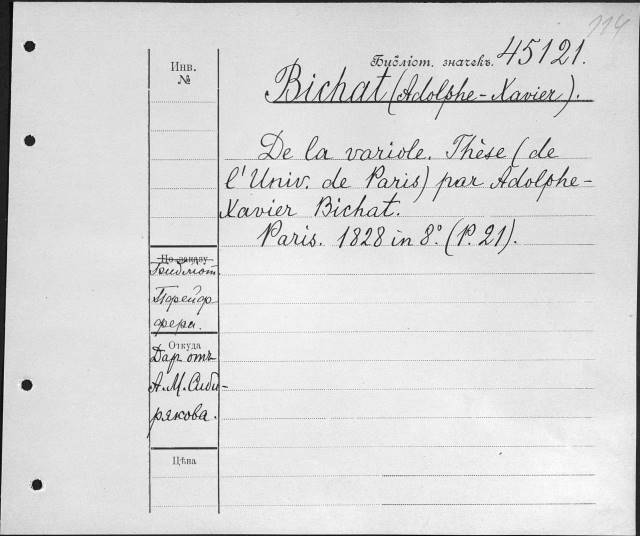 114
Библіот. значекъ. 45121.
Инв.
№
Bichat (Adolphe-Xavier).
De la variole. Thèse (de
l'Univ. de Paris) par Adolphe-
Xavier Bichat.
Paris. 1828 in 8.° (P. 21).
По заказу
Библіот.
Пфейф
фера.
Откуда
Даръ отъ
А. М. Сиби-
рякова.
Цѣна